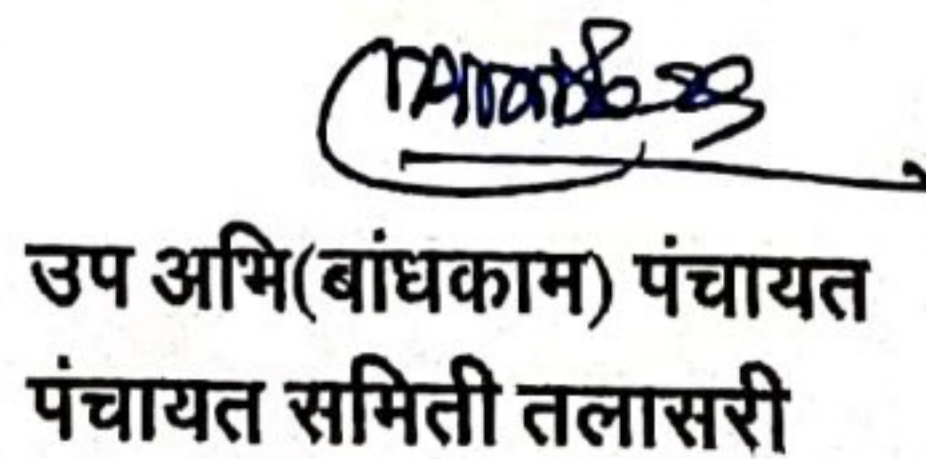 उप अभि(बांधकाम) पंचायत
पंचायत समिती तलासरी